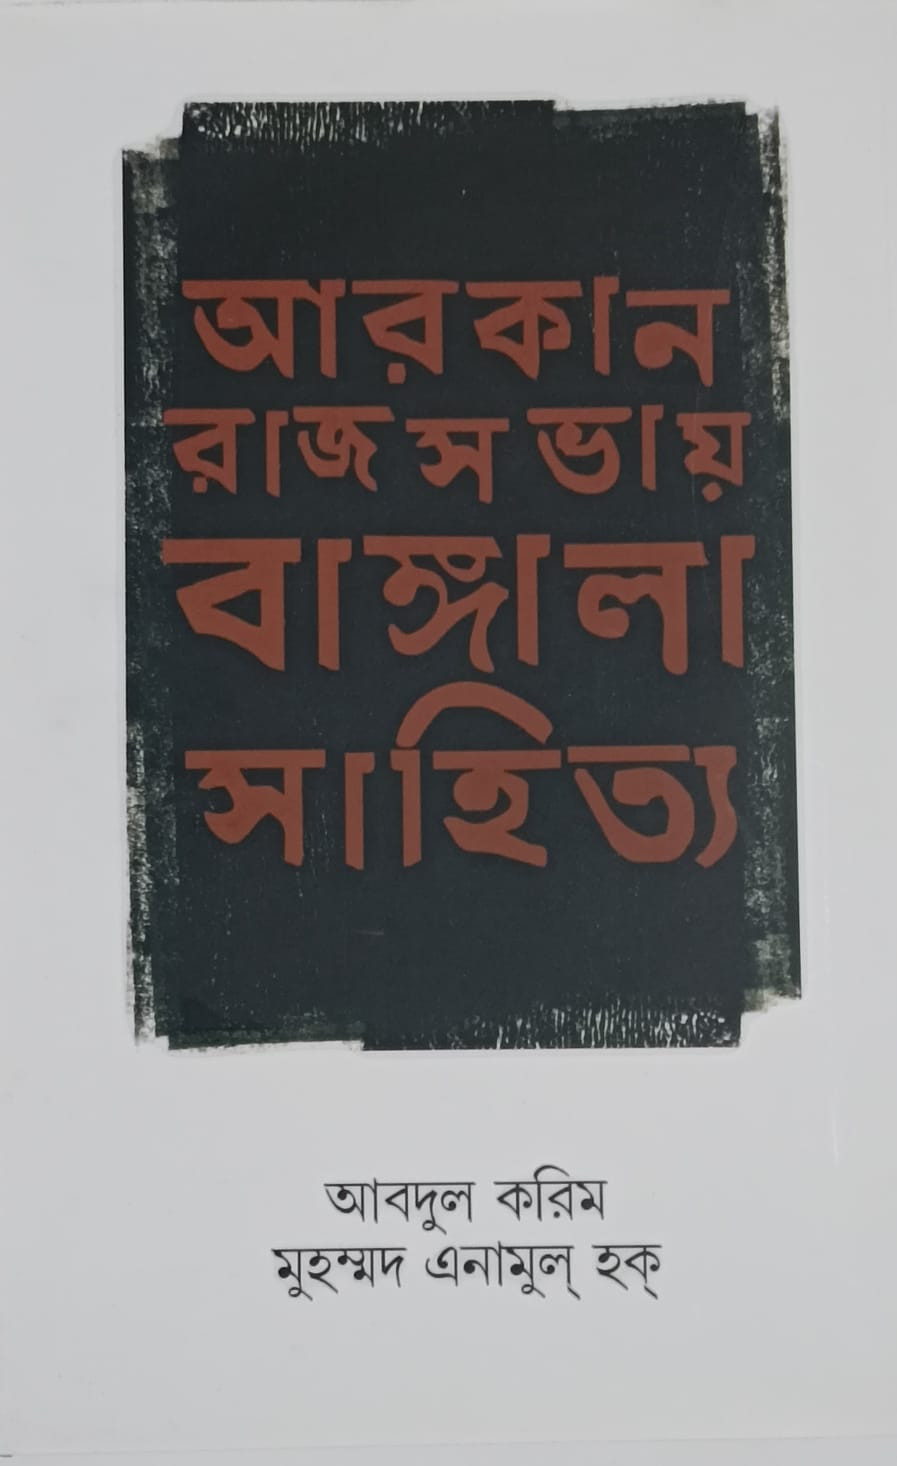 আরকান
রাজসভায়
বাঙ্গালা
সাহিত্য
আবদুল করিম
মুহম্মদ এনামুল্ হক্